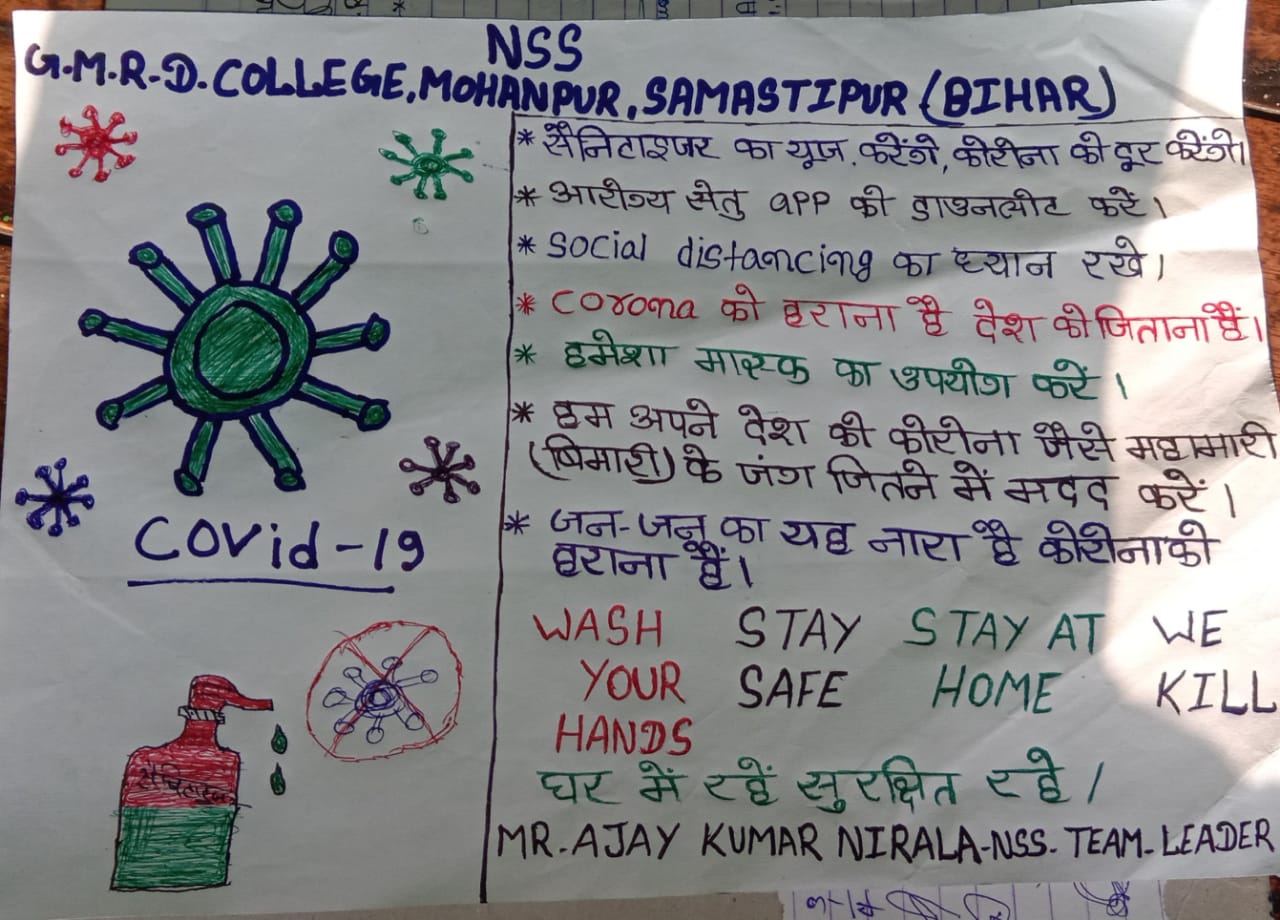 NSS
G.M.R.D. COLLEGE, MOHANPUR, SAMASTIPUR (BIHAR)
* सैनिटाइजर का यूज करेंगे, कोरोना को दूर करेंगे।
* आरोग्य सेतु app को डाउनलोट करें।
* Social distancing का ध्यान रखे।
* Corona को हराना है देश को जिताना हैं।
* हमेशा मास्क का उपयोग करें।
* हम अपने देश को कोरोना जैसे महामारी
(बिमारी) के जंग जितने में मदद करें।
* जन-जन का यह नारा है कोरोना को
हराना हैं।
COVid-19
WASH STAY STAY AT WE
YOUR SAFE HOME KILL
HANDS
घर में रहें सुरक्षित रहे।
MR. AJAY KUMAR NIRALA-NSS. TEAM. LEADER